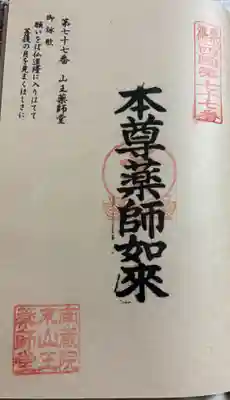 四国第七十七番
本尊薬師如来
第七十七番 山王薬師堂
御詠歌
願いをば仏道隆に入りはてて
菩提の月を見まくほしさに
南蔵院
山王
薬師堂